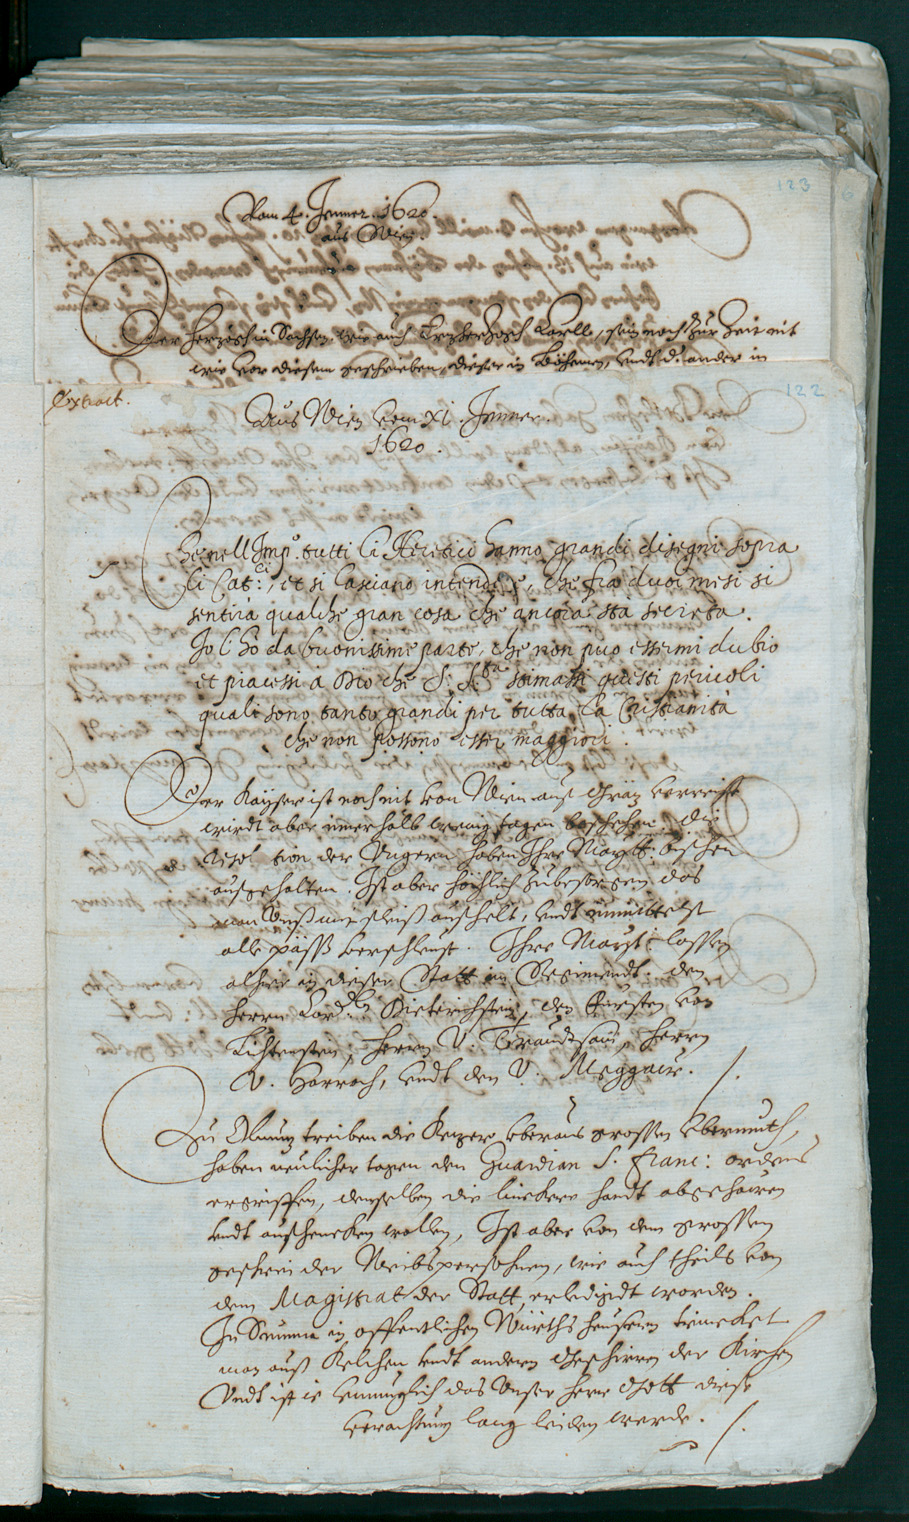 123
Vom 4. Jenner. 1620
aus Wien.
Der Herzog in Sachsen, wie auch Erzherzogh Carll, sein noch zur Zeit nit
wie vor diesem geschrieben, dieser in Böhemen, undt d. ander in
122
Extract.
Aus Wien vom XI. Jenner
1620.
Che nell Imp.º tutti li Heretici hanno grandi disegni sopra
li Cat:ci, et si lasciano intendere, che fra duoi mesi si
sentirà qualche gran cosa che ancora stà secreta.
Jo l'ho da buonissime parte, che non puo essermi dubio
et piacessi a Dio che S. S.tà stimassi questi pericoli
quali sono tanto grandi per tutta la Cristianità
che non possono esser maggiori.
Der Kayser ist noch nit von Wien auß Gräz verreist
wirdt aber innerhalb wenig tagen beschehen. Die
Resol tion der Ungern haben Ihre Maytt: bißhero
aufgehalten. Ist aber höchlich zubesorgen das
man Unß mit fleiß aufhelt, undt unmittelst
alle päss verschleust. Ihre Mayst: lassen
alhier in dieser Statt im Regiment. den
Herrn Card.l Dietrichstein, den Fürsten von
Lichtenstein, Herrn V. Trautsam, Herrn
V. Harrach, undt den V. Meggaur.
Zu Olmuz treiben die Kezer uberaus grossen Ubermuth,
haben neulicher tagen den Guardian S. Franc: ordens
ergriffen, demselben die linckere handt abgehawen
undt aufhencken wollen, Ist aber von dem grossen
geschrei der Weibspersohnen, wie auch theils von
dem Magistrat der Statt erledigedt worden.
In Summa in offentlichen Würthsheusern trincket
man auß Kelchen undt andern Geschirren der Kirchen
Undt ist ie unmuglich das Unser herr Gott diese
verachtung lang leiden werde.